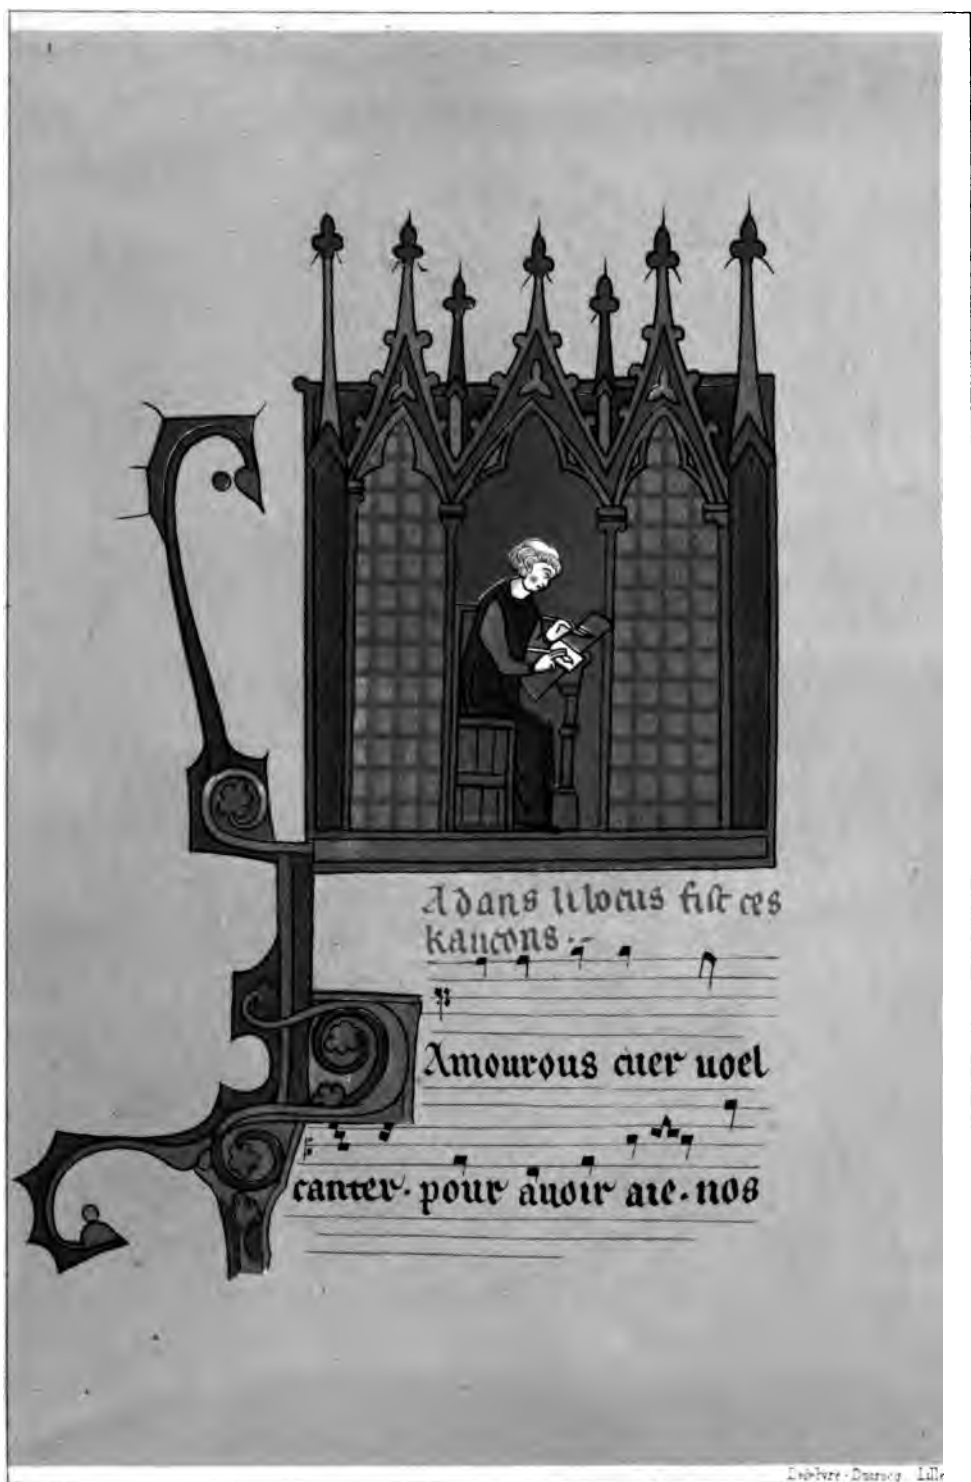 Adans li bocus fist ces
kancons
Amourous cuer uoel
canter · pour auoir aie · nos
Lefebvre-Ducrocq Lille